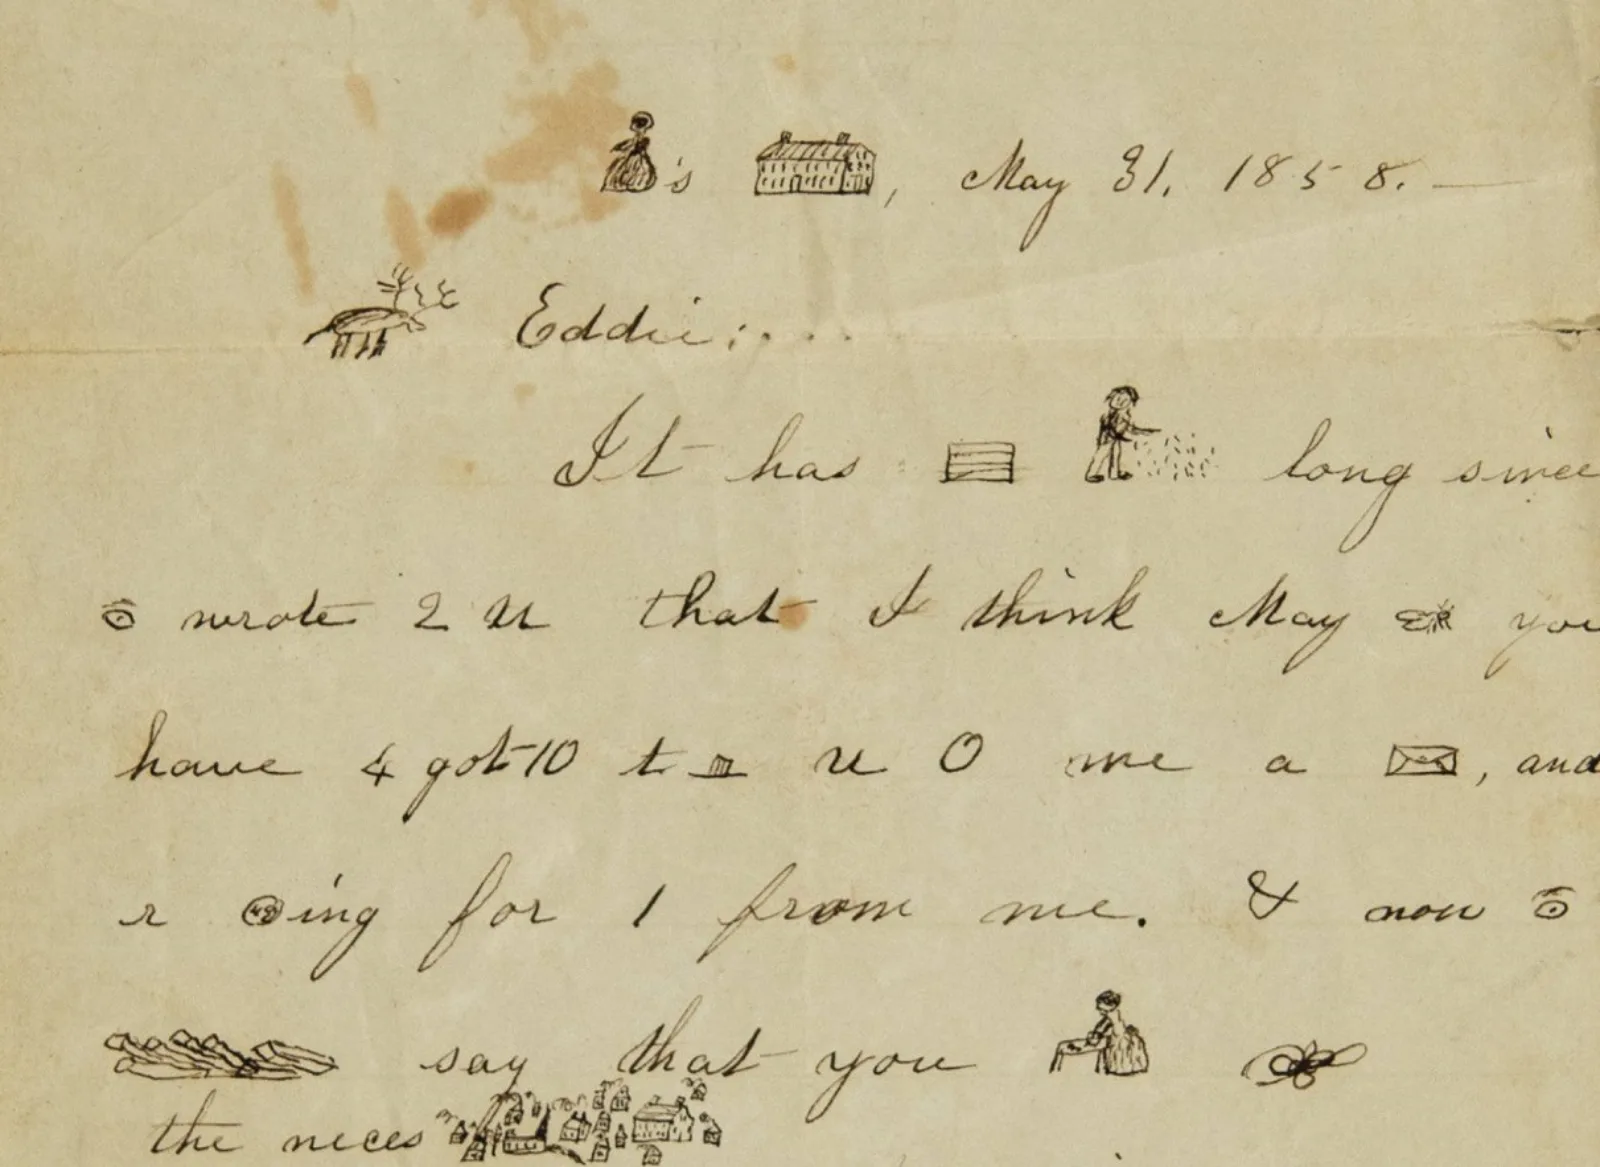 's , May 31. 1858.
Eddie:....
It has long since
wrote 2 u that I think May you
have 4 got 10 t u O me a , and
r ing for 1 from me. & now
say that you
the neces